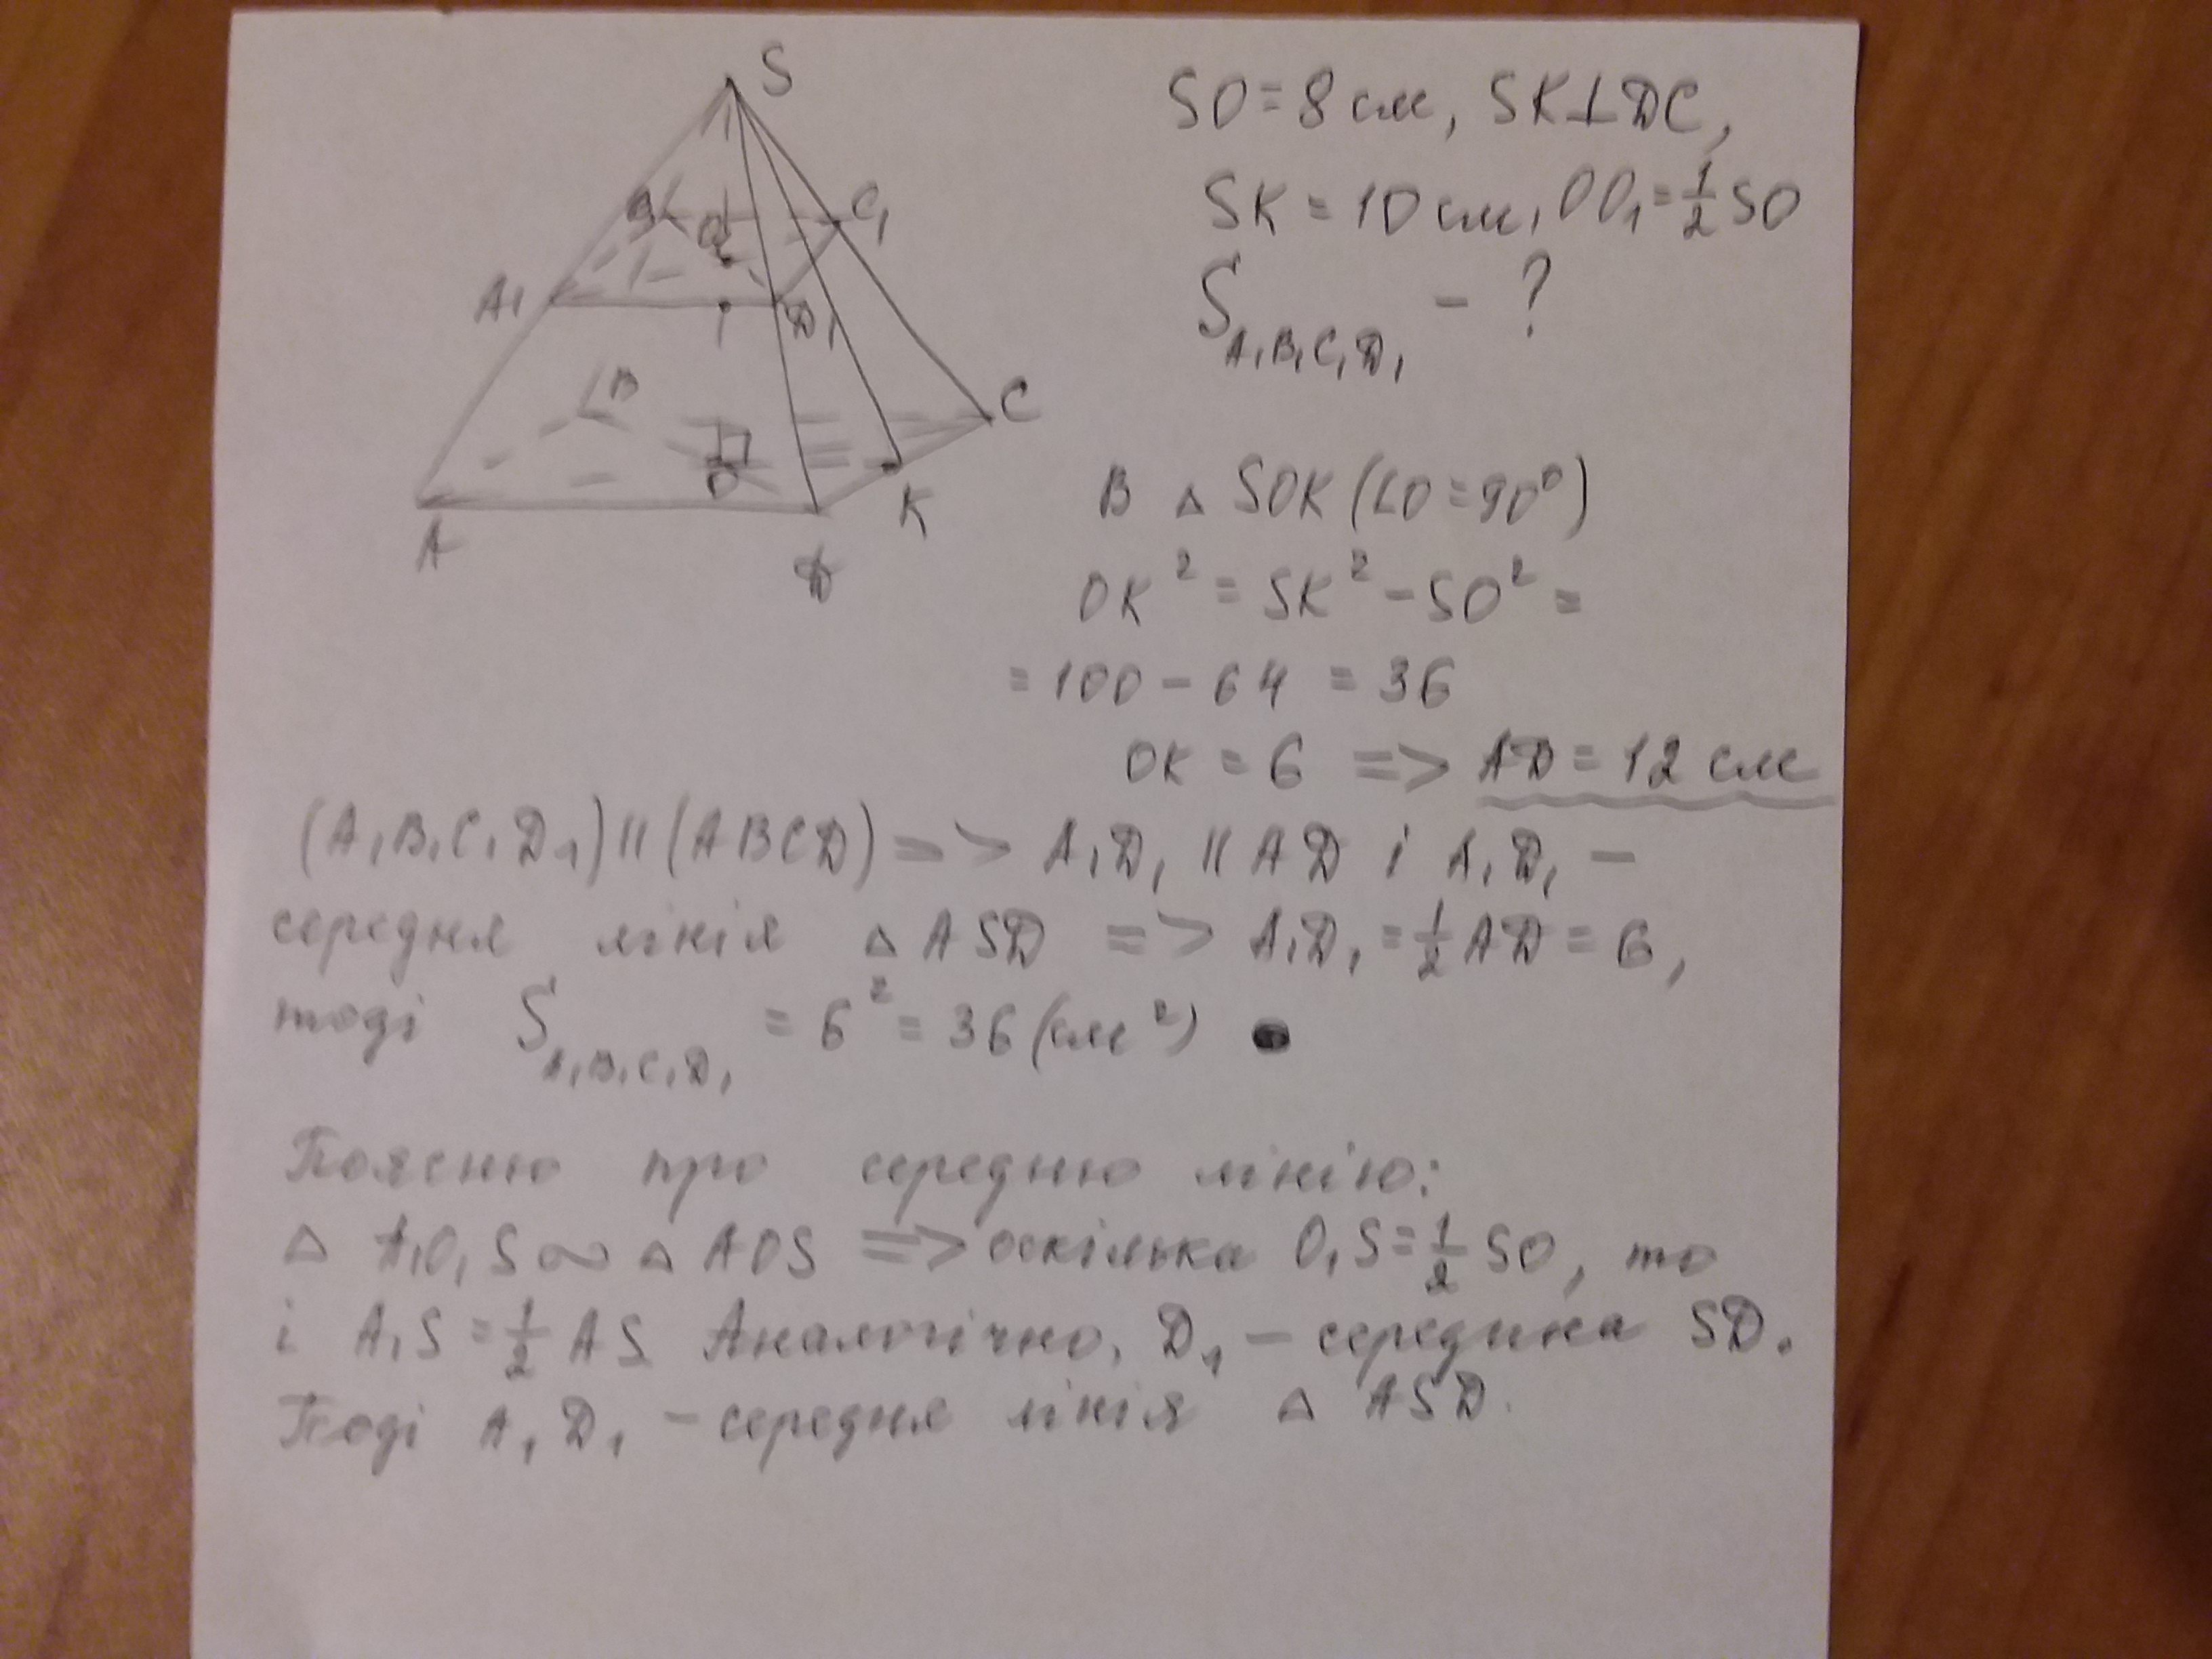 S
B₁
O₁
C₁
A₁
D₁
B
C
O
K
A
D
SO = 8 см, SK⊥DC,
SK = 10 см, OO₁ = 1/2 SO
S A₁B₁C₁D₁ - ?
В △ SOK (∠O = 90⁰)
OK² = SK² - SO² =
= 100 - 64 = 36
OK = 6 => AD = 12 см
(A₁B₁C₁D₁) || (ABCD) => A₁D₁ || AD і A₁D₁ -
середня лінія △ ASD => A₁D₁ = 1/2 AD = 6,
тоді S A₁B₁C₁D₁ = 6² = 36 (см²)
Поясню про середню лінію:
△ A₁O₁S ∞ △ AOS => оскільки O₁S = 1/2 SO, то
і A₁S = 1/2 AS Аналогічно, D₁ - середина SD.
Тоді A₁D₁ - середня лінія △ ASD.